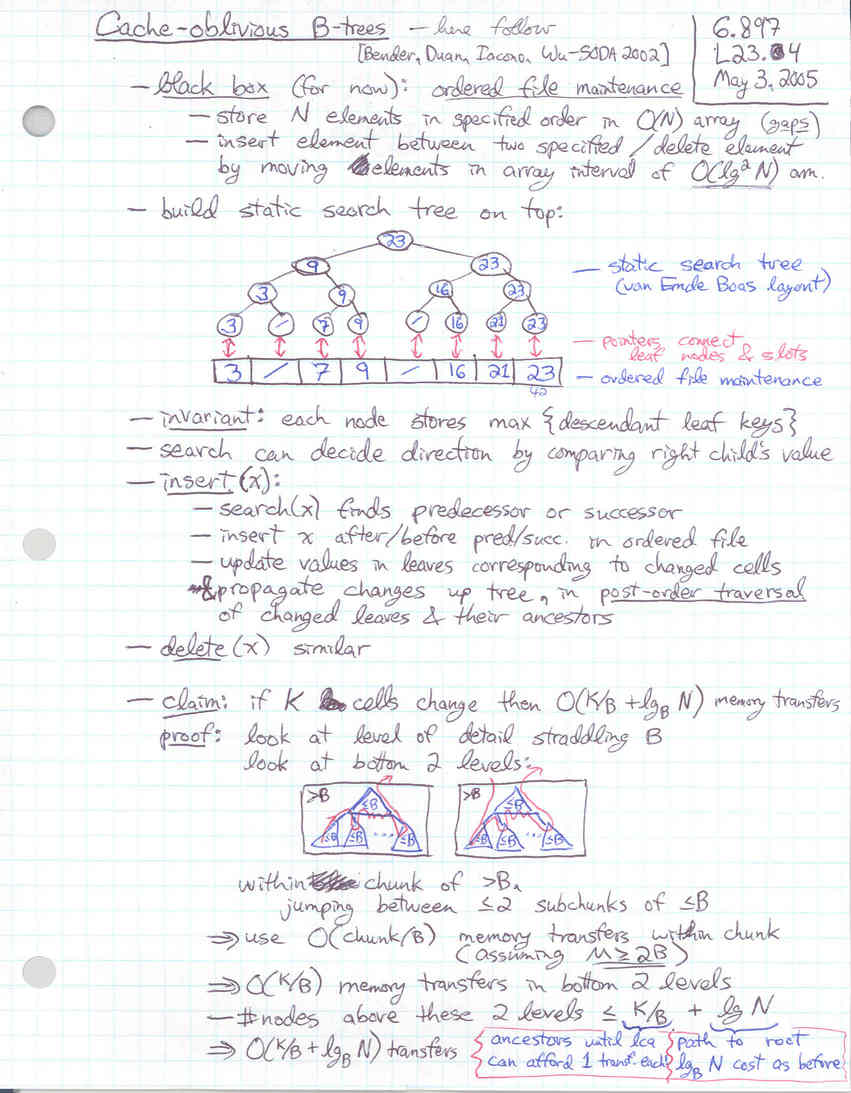 Cache-oblivious B-trees — here follow
[Bender, Duan, Iacono, Wu - SODA 2002]
6.897
L23.4
May 3, 2005
— black box (for now): ordered file maintenance
— store N elements in specified order in O(N) array (gaps)
— insert element between two specified / delete element
by moving elements in array interval of O(lg² N) am.
— build static search tree on top:
23
9 23
3 9 16 23
3 / 7 9 / 16 21 23
— static search tree
(van Emde Boas layout)
— pointers connect
leaf nodes & slots
3 / 7 9 / 16 21 23
42
— ordered file maintenance
— invariant: each node stores max {descendant leaf keys}
— search can decide direction by comparing right child's value
— insert(x):
— search(x) finds predecessor or successor
— insert x after/before pred/succ. in ordered file
— update values in leaves corresponding to changed cells
& propagate changes up tree, in post-order traversal
of changed leaves & their ancestors
— delete(x) similar
— claim: if K cells change then O(K/B + lg_B N) memory transfers
proof: look at level of detail straddling B
look at bottom 2 levels:
>B ≤B ≤B ≤B ... ≤B
>B ≤B ≤B ≤B ... ≤B
within chunk of >B,
jumping between ≤2 subchunks of ≤B
⇒ use O(chunk/B) memory transfers within chunk
(assuming M ≥ 2B)
⇒ O(K/B) memory transfers in bottom 2 levels
— #nodes above these 2 levels ≤ K/B + lg N
⇒ O(K/B + lg_B N) transfers
ancestors until lca
can afford 1 transf. each
path to root
lg_B N cost as before